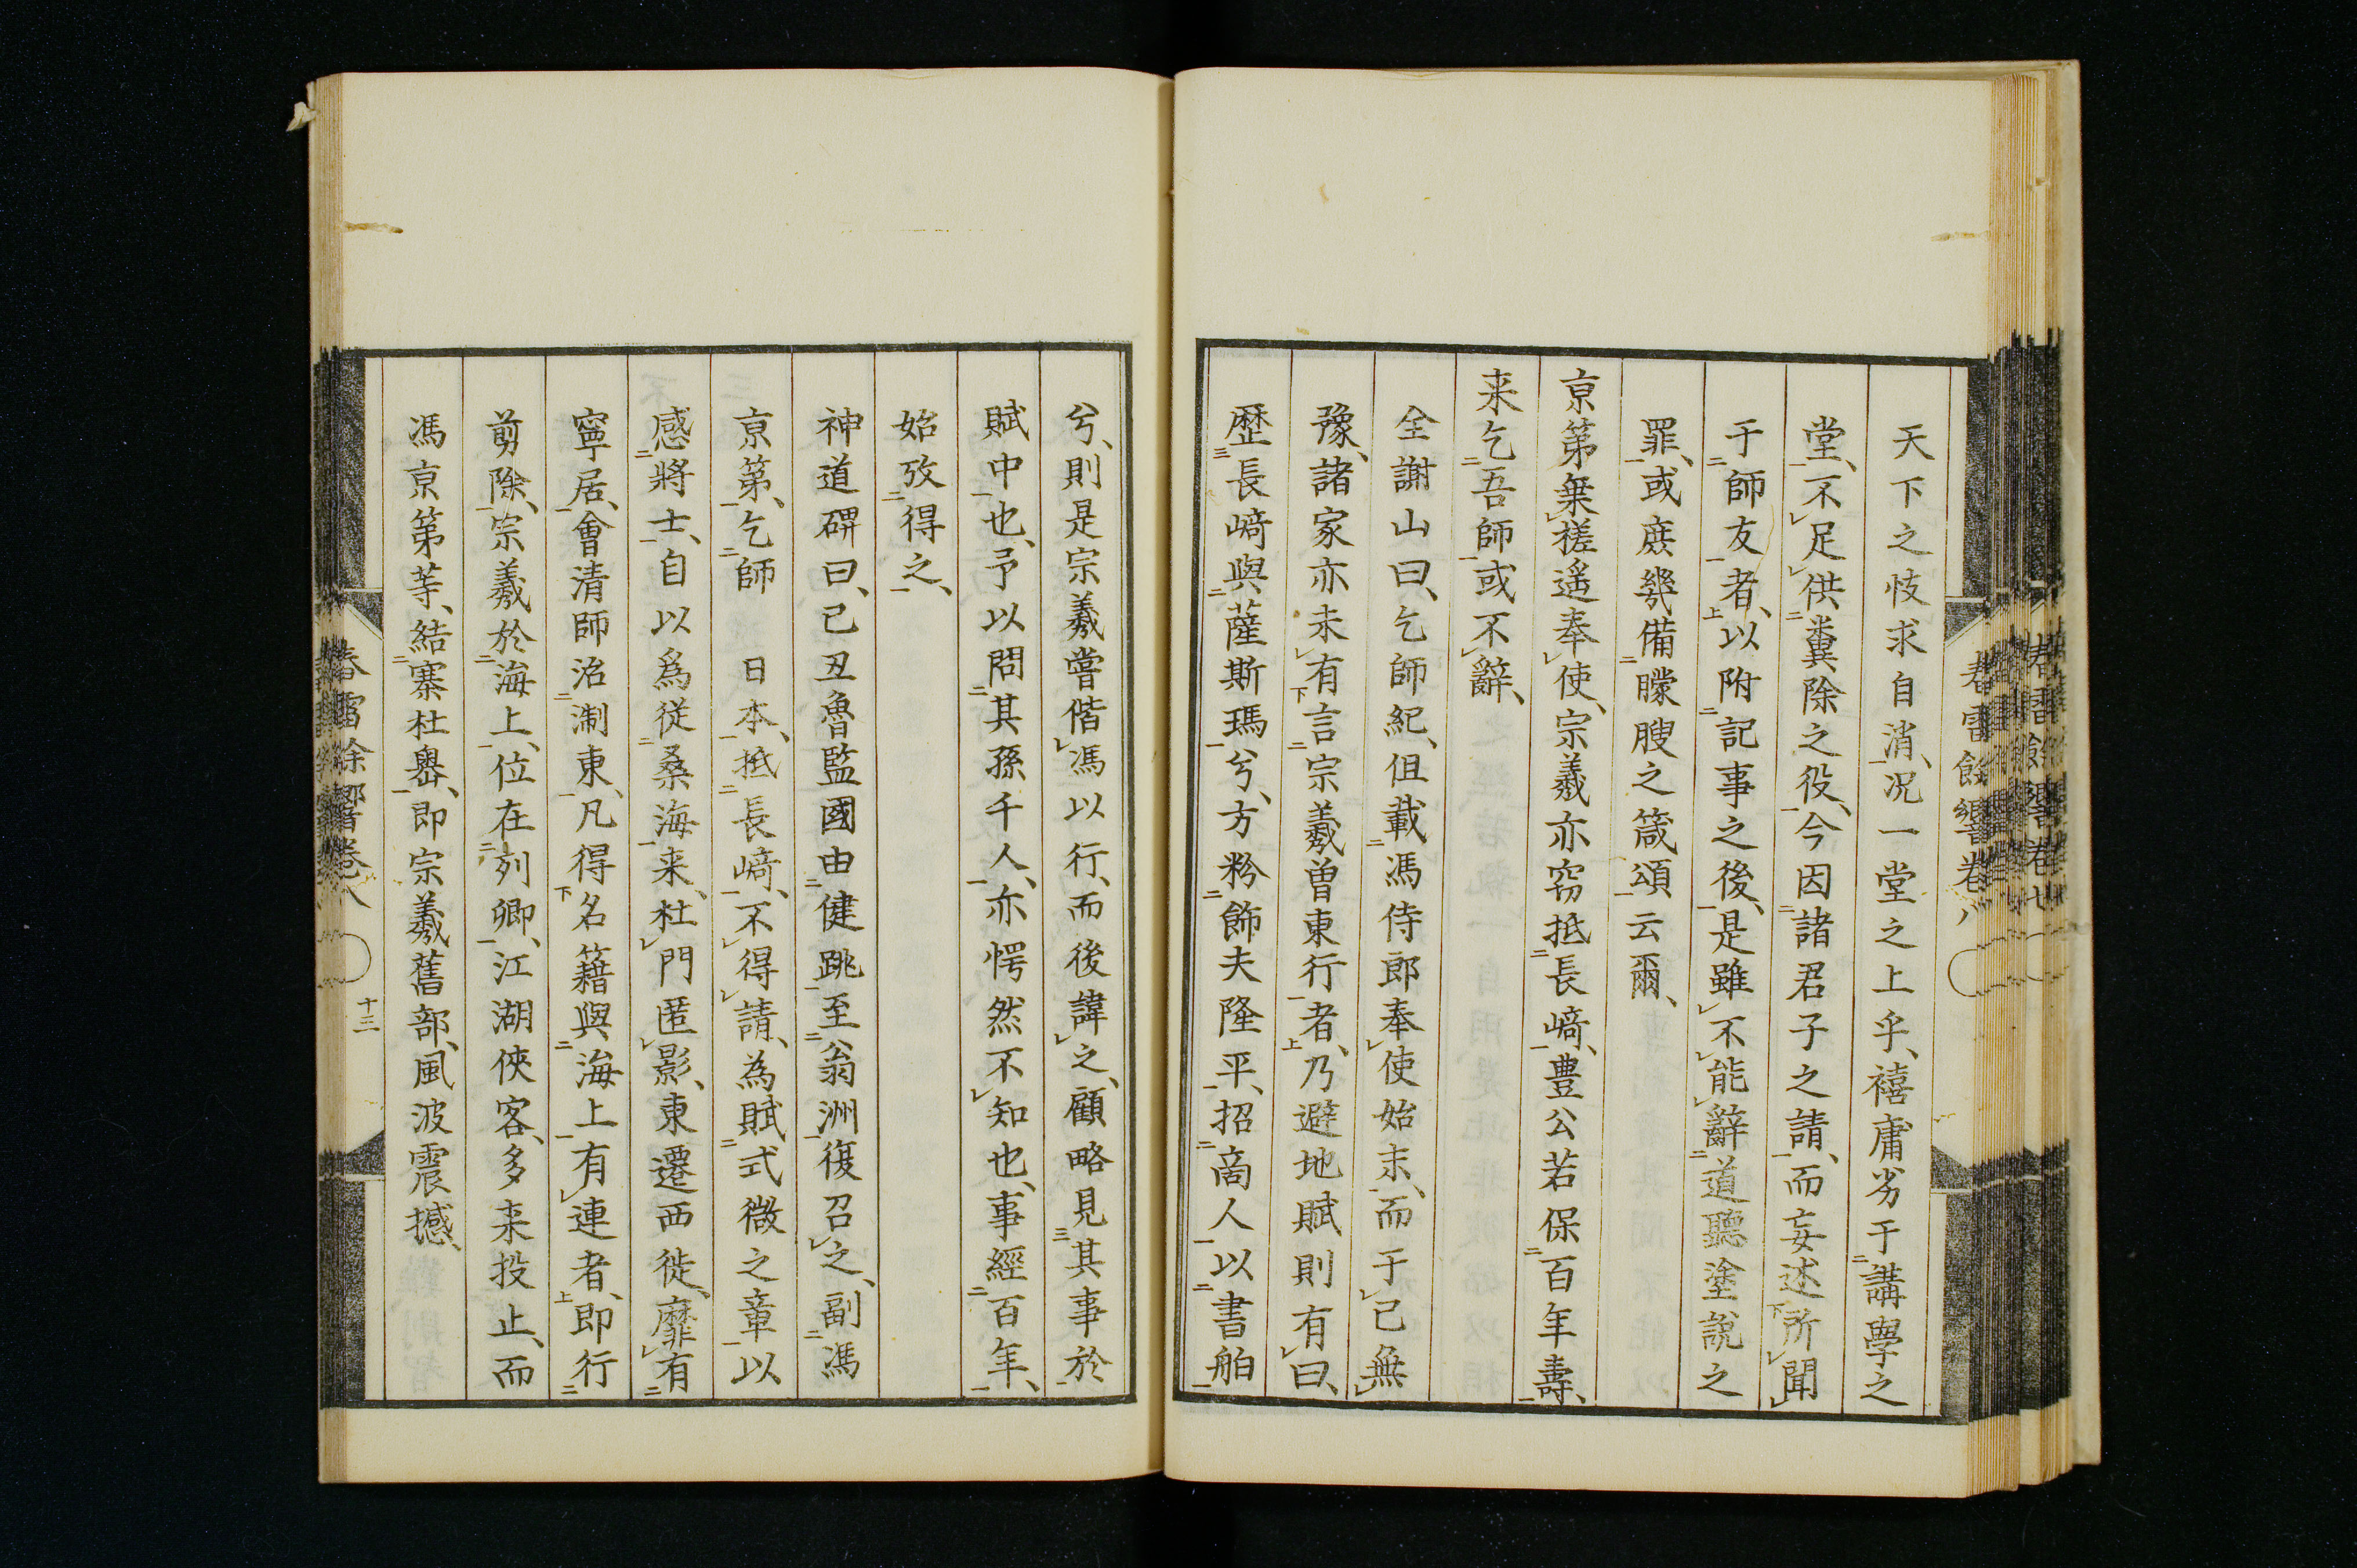 天下之忮求自消、况一堂之上乎、禧庸劣于講學之
堂、不足供糞除之役、今因諸君子之請、而妄述所聞
于師友者、以附記事之後、是雖不能辭道聽塗說之
罪、或庶幾備矇瞍之箴頌云爾、
亰第椉槎遥奉使、宗羲亦窃抵長﨑、豊公若保百年壽、
来乞吾師或不辭、
全謝山曰、乞師紀、但載馮侍郎奉使始末、而于已無
豫、諸家亦未有言宗羲曽東行者、乃避地賦則有曰、
歴長﨑與薩斯瑪兮、方粉飾夫隆平、招商人以書舶
兮、則是宗羲嘗偕馮以行、而後諱之、顧略見其事於
賦中也、予以問其孫千人、亦愕然不知也、事經百年、
始攷得之、
神道碑曰、己丑魯監國由健跳至翁洲復召之、副馮
亰第、乞師日本、抵長﨑、不得請、為賦式微之章以
感將士、自以爲従桑海来、杜門匿影、東遷西徙、靡有
寧居、會清師治浙東、凡得名籍與海上有連者、即行
剪除、宗羲於海上、位在列卿、江湖俠客、多来投止、而
馮亰第等、結寨杜嶴、即宗羲舊部、風波震撼、
春雪餘響卷八
十三